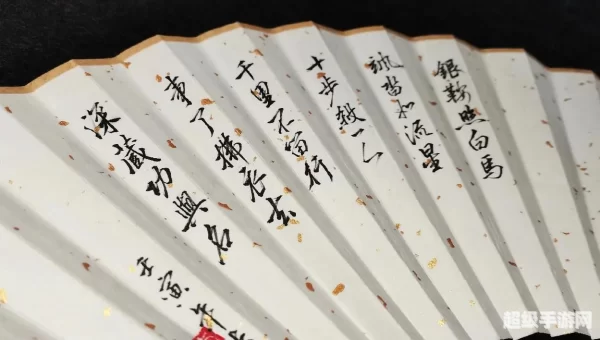 銀鞍照白馬
颯沓如流星
十步殺一人
千里不留行
事了拂衣去
深藏功與名
壬寅年
超级手游网